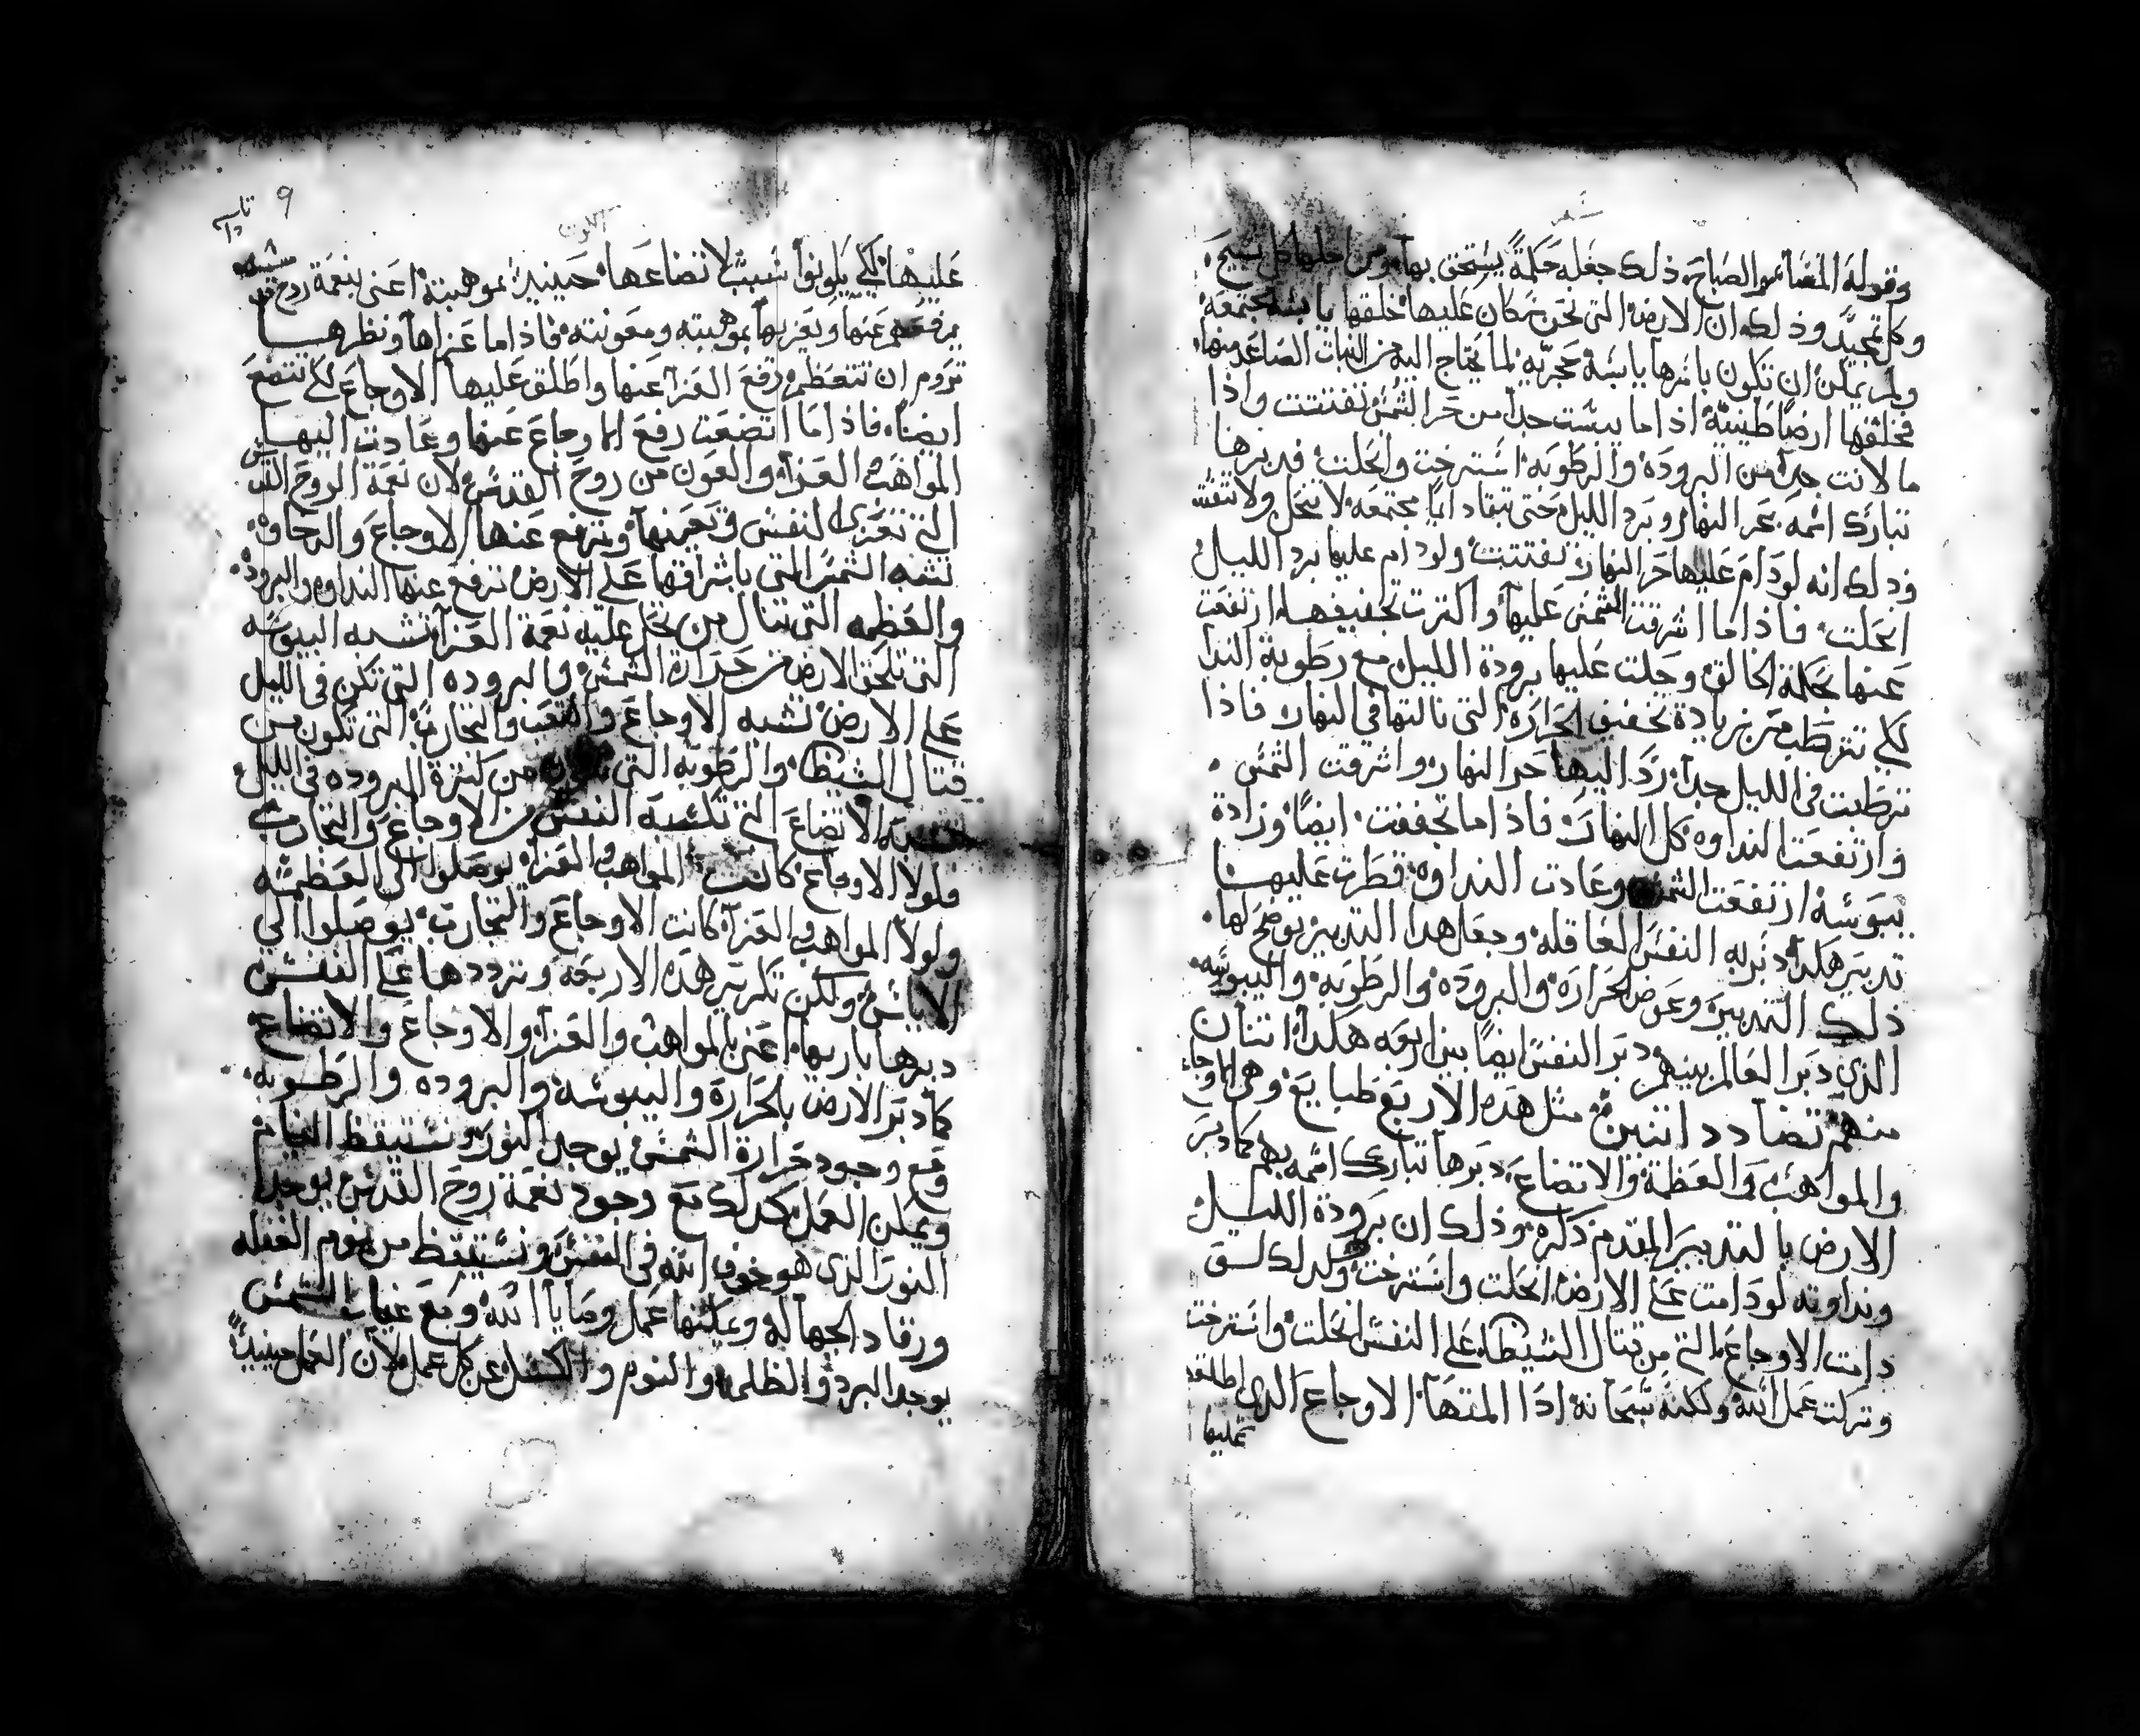 وقوله المسا نمو الصباح ذلك جعله حكمة يستحق بها ومن اجلها كل تسبيح
وكل تمجيد وذلك ان الارض التى نحن سكان عليها خلقها يابسه مجتمعه
ولم يمكن ان تكون باسرها يابسة حجريه لما يحتاج اليه من النبات الصاعد منها
فخلقها ارضا طينية اذ اما يبست جدا من حر الشمس تفتتت واذا
ما لانت جدا من البرودة والرطوبه استرخت وانحلت فدبرها
تبارك اسمه بحر النهار وبرد الليل حتى تبقا دايما مجتمعه لا تنحل ولا تتفتت
وذلك انه لو دام عليها حر النهار تفتتت ولو دام عليها برد الليل
انحلت فاذا ما اشرقت الشمس عليها واكترت تجفيفها ارتفعت
عنها بحكمة الخالق وحلت عليها برودة الليل مع رطوبة الندا
لكي تترطب من زيادة تجفيف الحرارة التى نالتها فى النهار فاذا
ترطبت فى الليل جدا رد اليها حر النهار واشرقت الشمس
وارتفعت النداوه كل النهار فاذا ما تجففت ايضا وزادة
يبوسه ارتفعت الشمس وعادت النداوه قطرت عليها
تدبير هكدا دبر به النفس العاقله وجعل هدا التدبير يوضح لها
ذلك التدبير وعوض الحرارة والبروده والرطوبه واليبوسه
الذى دبر العالم بينهم دبر النفس ايضا بين اربعه هكدا اتنان
منهم تضادد اتنين مثل هذه الاربع طبايع وهى الاوجاع
والمواهب والعظمة والاتضاع دبرها تبارك اسمه بهم كما دبر
الارض بالتدبير المقدم ذكره وذلك ان برودة الليل
ونداوته لو دامت على الارض انحلت واسترخت وكدلك لو
دامت الاوجاع التى من قتال الشيطان على النفس انحلت واسترخت
وتركت عمل الله ولكنه سبحانه اذا المتها الاوجاع الدى اطلقه
عليها
9
عليها لكي يكونوا سبب لاتضاعها حينيد بموهبته اعنى بنعمة روح قدسه
يرفعهم عنها ويعزيها بموهبته ومعونته فاذا ما عزاها ونظرها
تروم ان تتعظم رفع العزا عنها واطلق عليها الاوجاع لكي تتضع
ايضا فاذا ما اتضعت رفع الاوجاع عنها وعادت اليها
المواهب العزا والعون من روح القدس لان نعمة الروح القدس
التى تعزى النفس وترفع عنها الاوجاع والرخاوه
تشبه الشمس التى باشراقها على الارض ترفع عنها النداوه والبروده
والعظمه التى تنال من تحل عليه نعمة العزا تشبه اليبوسه
التى تلحق الارض من حرارة الشمس والبروده التى تكن فى الليل
على الارض تشبه الاوجاع والتعب والتجارب التى تكون من
قتال الشيطان والرطوبه التى تكون من كترة البروده فى الليل
تشبه الاتضاع التى تكتسبه النفس من الاوجاع والتجارب
فلولا الاوجاع كانت المواهب والعزا يوصلوا الى العظمه
ولولا المواهب والعزا كانت الاوجاع والتجارب يوصلوا الى
الاياس ولكن تكرير هذه الاربعه وترددها على النفس
دبرها باريها اعنى بالمواهب والعزا والاوجاع والاتضاع
كما دبر الارض بالحرارة واليبوسه والبروده والرطوبه
ومع وجود حرارة الشمس يوجد النور ويستيقظ النيام
ويمكن العمل كدلك مع وجود نعمة روح القدس يوجد
النور الذى هو خوف الله فى النفس وتستيقظ من نوم الغفله
ورقاد الجهاله ويمكنها عمل وصايا الله ومع غياب الشمس
يوجد البرد والظلمه والنوم والكسل عن كل عمل لان العمل حينيد